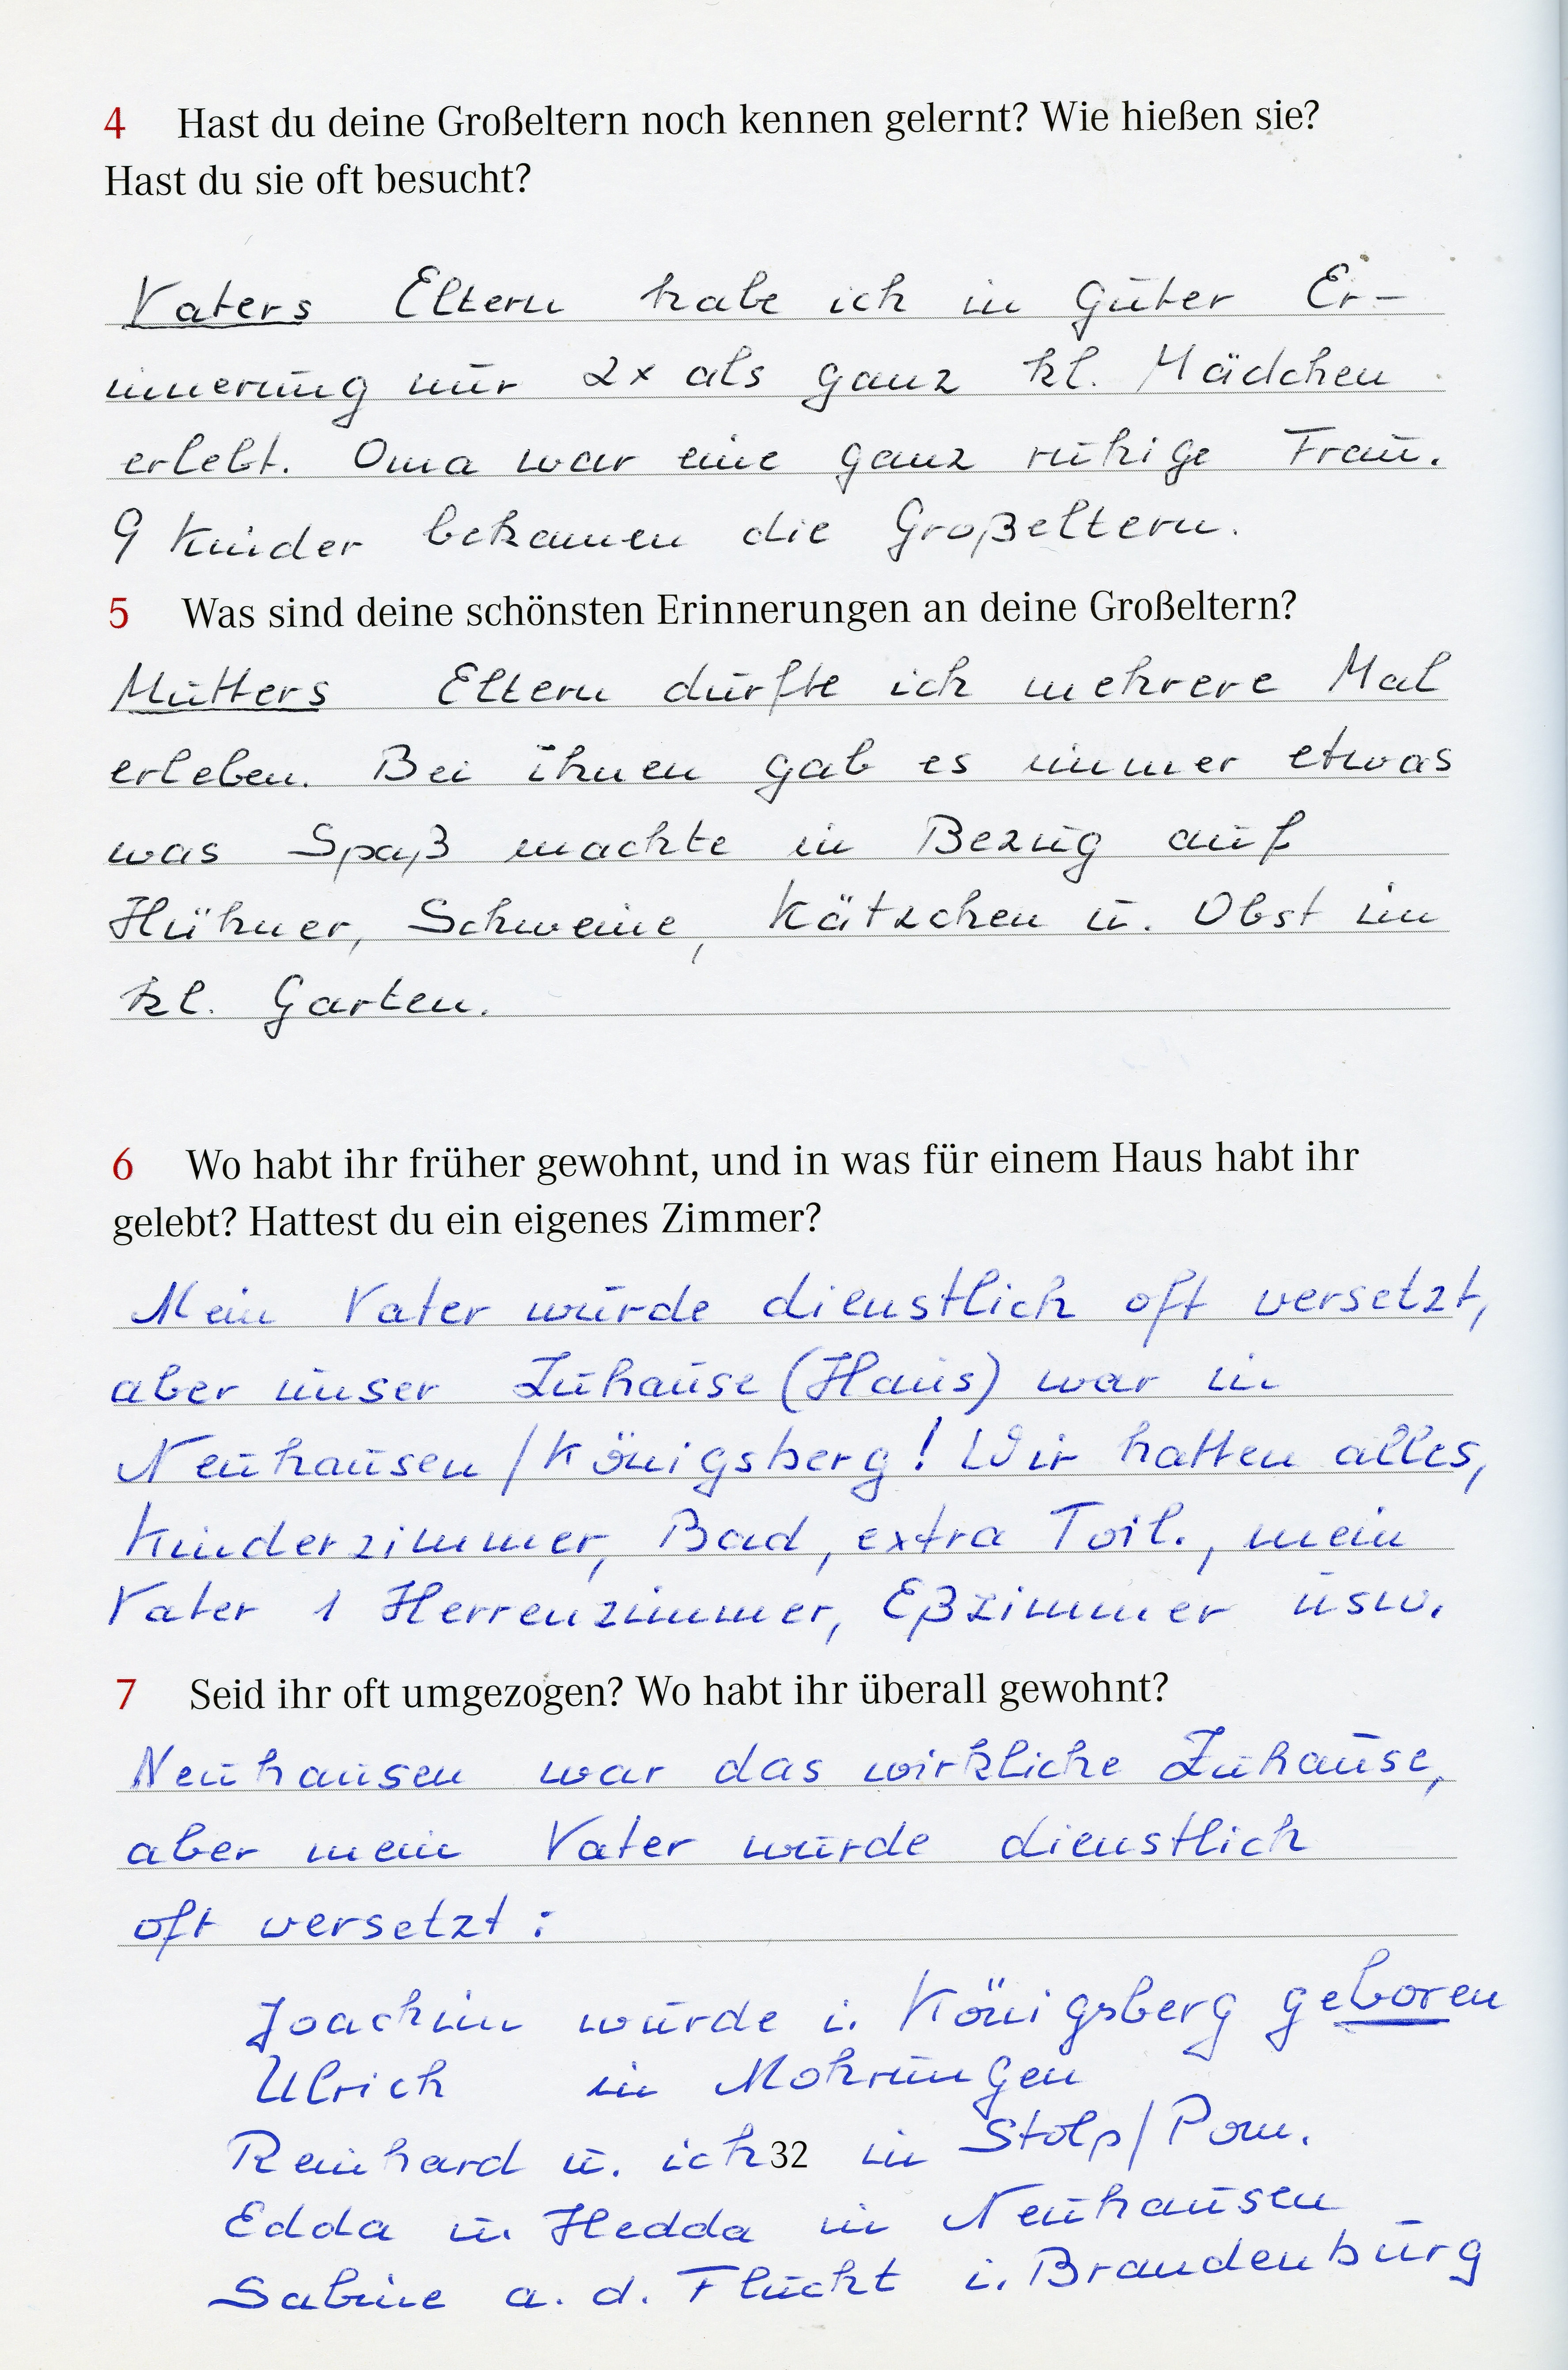 4 Hast du deine Großeltern noch kennen gelernt? Wie hießen sie?
Hast du sie oft besucht?
Vaters Eltern habe ich in guter Er-
innerung nur 2x als ganz kl. Mädchen
erlebt. Oma war eine ganz ruhige Frau.
9 Kinder bekamen die Großeltern.
5 Was sind deine schönsten Erinnerungen an deine Großeltern?
Mutters Eltern durfte ich mehrere Mal
erleben. Bei ihnen gab es immer etwas
was Spaß machte in Bezug auf
Hühner, Schweine, Kätzchen u. Obst im
kl. Garten.
6 Wo habt ihr früher gewohnt, und in was für einem Haus habt ihr
gelebt? Hattest du ein eigenes Zimmer?
Mein Vater wurde dienstlich oft versetzt,
aber unser Zuhause (Haus) war in
Neuhausen/Königsberg! Wir hatten alles,
Kinderzimmer, Bad, extra Toil., mein
Vater 1 Herrenzimmer, Eßzimmer usw.
7 Seid ihr oft umgezogen? Wo habt ihr überall gewohnt?
Neuhausen war das wirkliche Zuhause,
aber mein Vater wurde dienstlich
oft versetzt:
Joachim wurde i. Königsberg geboren
Ulrich in Mohrungen
Reinhard u. ich in Stolp/Pom.
32
Edda u. Hedda in Neuhausen
Sabine a. d. Flucht i. Brandenburg